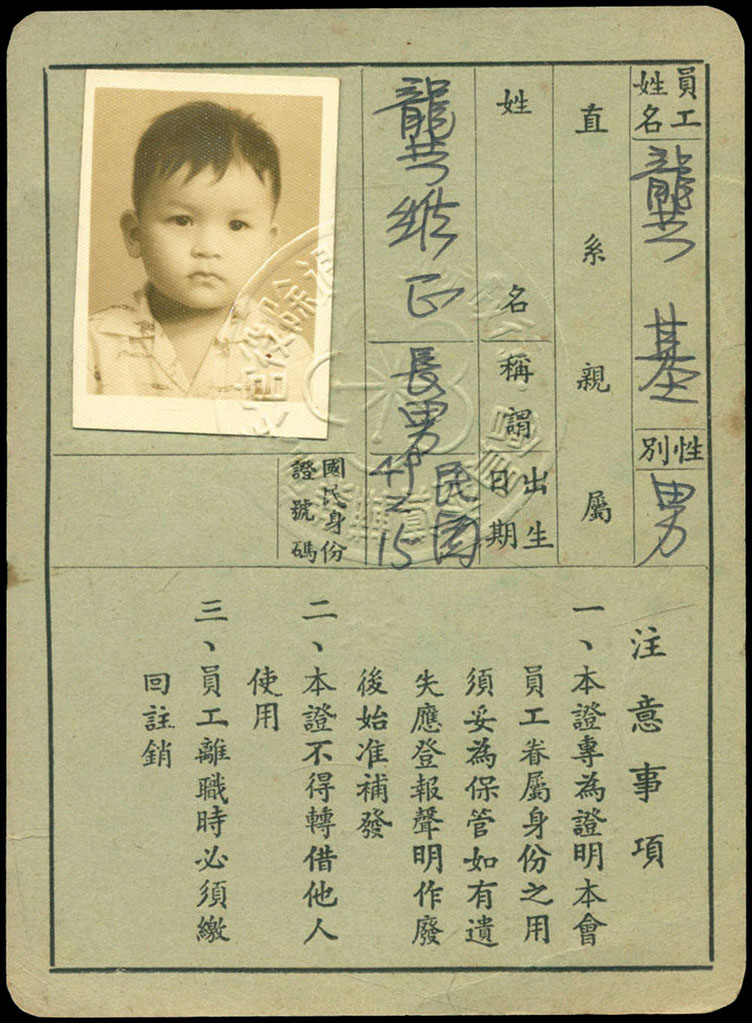 員工姓名
龔基
性別
男
直系親屬
姓名
稱謂
出生日期
龔維正
長男
民國
15
國民身份證號碼
注意事項
一、本證專為證明本會
員工眷屬身份之用
須妥為保管如有遺
失應登報聲明作廢
後始准補發
二、本證不得轉借他人
使用
三、員工離職時必須繳
回註銷